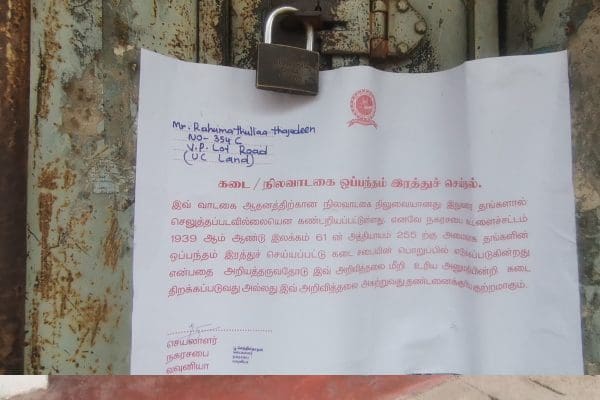 Mr. Rahumathullaa thajudeen
NO- 354 C
V.P. Lot Road
(UC Land)
கடை / நிலவாடகை ஒப்பந்தம் இரத்துச் செய்தல்.
இவ் வாடகை ஆதனத்திற்கான நிலவாடகை நிலுவையானது இதுவரை தங்களால்
செலுத்தப்படவில்லையென கண்டறியப்பட்டுள்ளது. எனவே நகரசபை கட்டளைச்சட்டம்
1939 ஆம் ஆண்டு இலக்கம் 61 ன் அத்தியாயம் 255 ற்கு அமைவாக தங்களின்
ஒப்பந்தம் இரத்துச் செய்யப்பட்டு கடை சபையின் பொறுப்பில் எடுக்கப்படுகின்றது
என்பதை அறியத்தருவதோடு இவ் அறிவித்தலை மீறி உரிய அனுமதியின்றி கடை
திறக்கப்படுவது அல்லது இவ் அறிவித்தலை அகற்றுவது தண்டனைக்குரிய குற்றமாகும்.
செயலாளர்
நகரசபை
வவுனியா